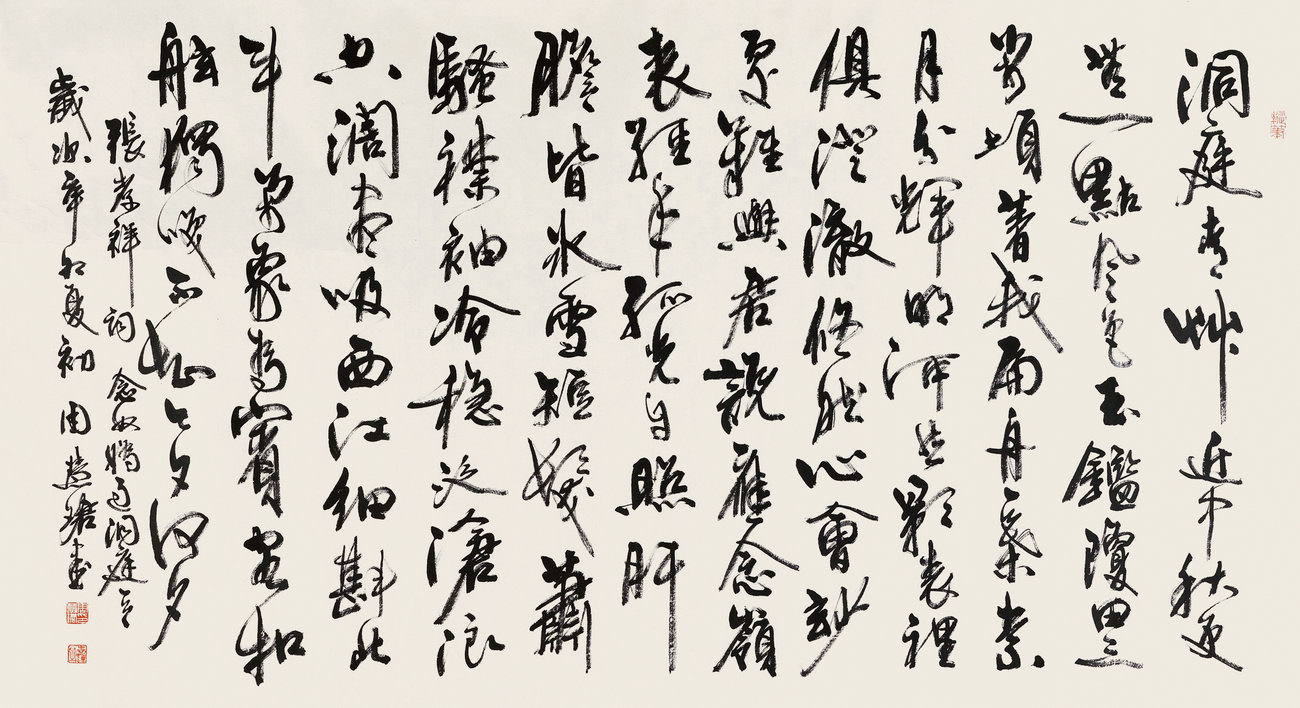 洞庭青艸近中秋更
無一點風色玉鑑瓊田三
萬頃著我扁舟一葉素
月分輝明河共影表裡
俱澄澈悠然心會妙
處難與君說應念嶺
表經年孤光自照肝
膽皆冰雪短髮蕭
騷襟袖冷穩泛滄浪
空濶盡吸西江細斟北
斗萬象為賓客扣
舷獨咲不知今夕何夕
張孝祥詞念奴嬌過洞庭
歲次辛卯夏初周慧珺書